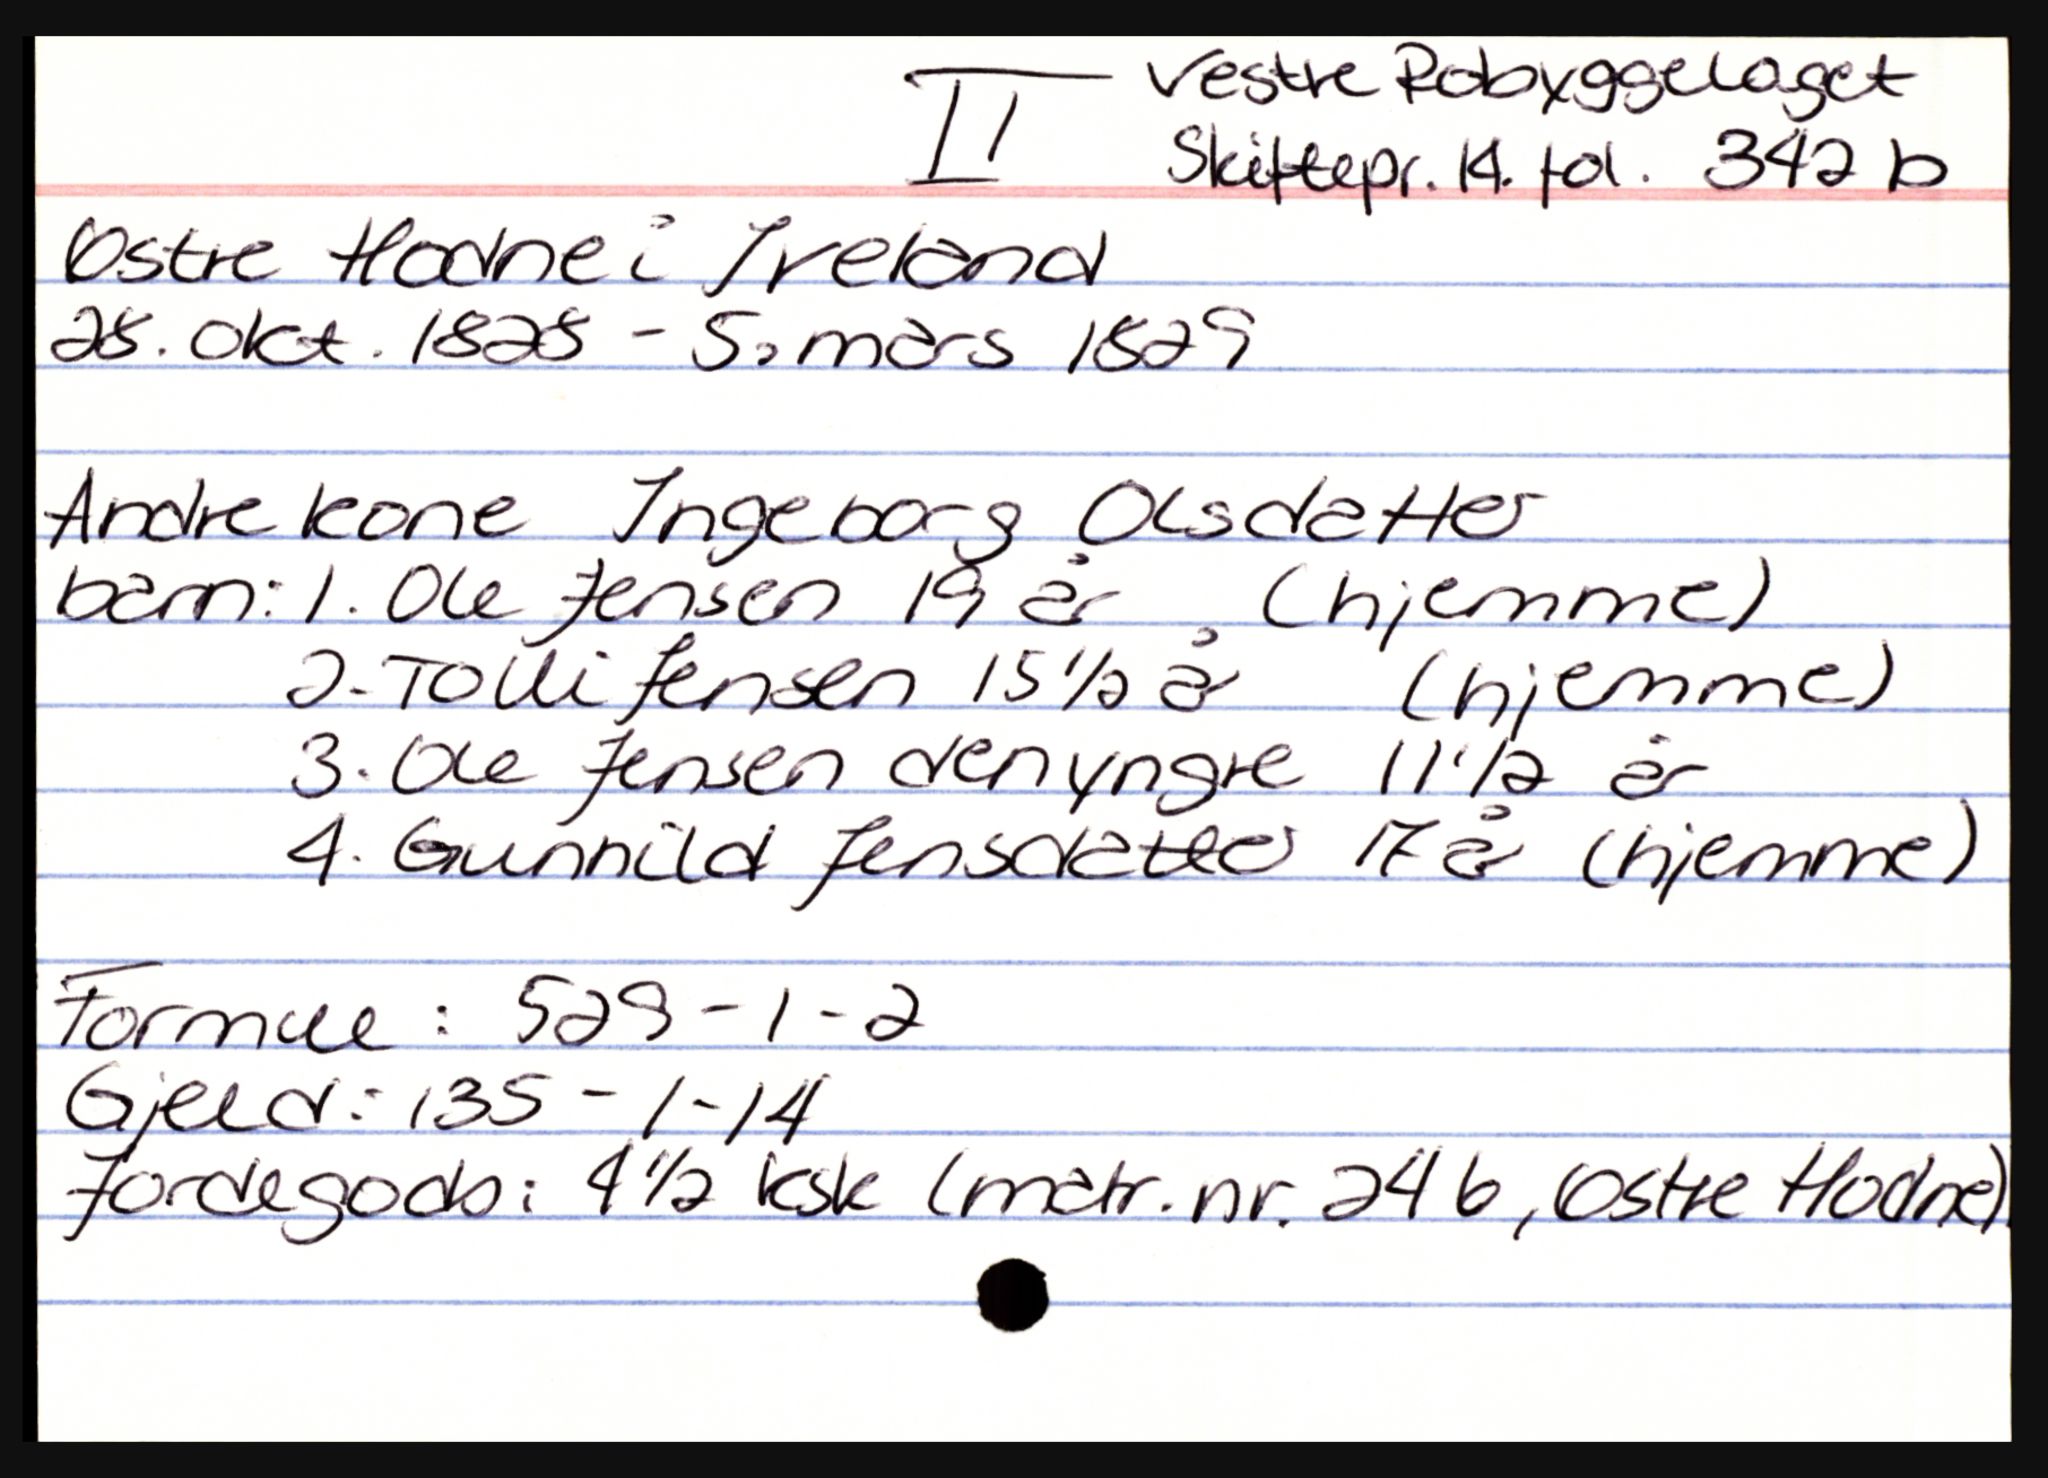 II
Vestre Robyggelaget
Skiftepr. 14. fol. 342 b
Østre Hodne i Iveland
28. okt. 1828 - 5. mars 1829
Andre kone Ingeborg Olsdatter
barn: 1. Ole Jensen 19 år (hjemme)
2. Tolli Jensen 15 1/2 år (hjemme)
3. Ole Jensen den yngre 11 1/2 år
4. Gunnild Jensdatter 17 år (hjemme)
Formue: 529-1-2
Gjeld: 135-1-14
Jordegods: 4 1/2 ksk (matr. nr. 24 b, Østre Hodne).